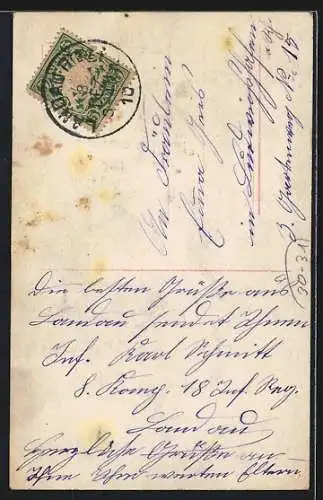 LANDAU (PFALZ)
An Fräulein
Luna Geis
in Ludwigshafen
a. Rh.
3. Gartenweg No. 15
30-311
Die besten Grüße aus
Landau sendet Ihnen
Inf. Karl Schmitt
8. Komp. 18 Inf. Reg.
Landau
Herzliche Grüße an
Ihre werten Eltern